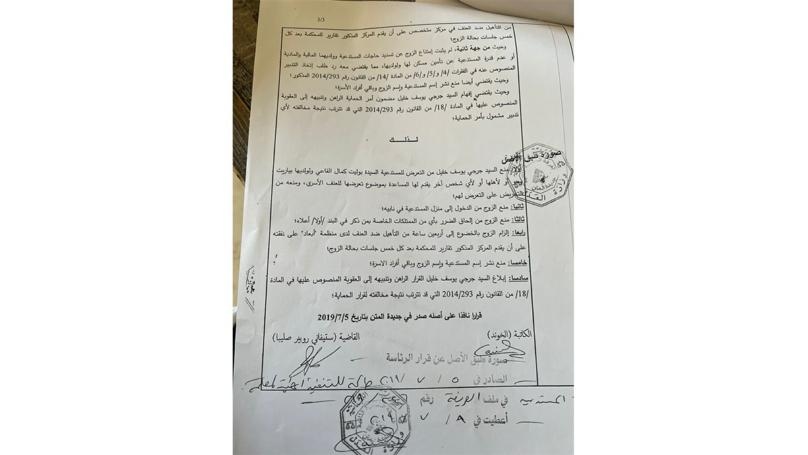 3/3
من التأهيل ضد العنف في مركز متخصص على أن يقدم المركز المذكور تقارير للمحكمة بعد كل
خمس جلسات بحالة الزوج؛
وحيث من جهة ثانية، لم يثبت إمتناع الزوج عن تسديد حاجات المستدعية وولديهما المالية والمادية
أو عدم قدرة المستدعية عن تأمين مسكن لها ولولديها، مما يقتضي معه رد طلب إتخاذ التدبير
المنصوص عنه في الفقرات /4/ و/5/ و/6/ من المادة /14/ من القانون رقم 2014/293 المذكور؛
وحيث يقتضي أيضا منع نشر إسم المستدعية وإسم الزوج وباقي أفراد الأسرة؛
وحيث يقتضي إفهام السيد جرجي يوسف خليل مضمون أمر الحماية الراهن وتنبيهه إلى العقوبة
المنصوص عليها في المادة /18/ من القانون رقم 2014/293 التي قد تترتب نتيجة مخالفته لأي
تدبير مشمول بأمر الحماية؛
لـذلـــك
صورة طبق الأصل
أولا: منع السيد جرجي يوسف خليل من التعرض للمستدعية السيدة بوليت كمال القاعي ولولديها بياريت
أو لأهلها أو لأي شخص آخر يقدم لها المساعدة بموضوع تعرضها للعنف الأسري، ومنعه من
التحريض على التعرض لهم؛
ثانيا: منع الزوج من الدخول إلى منزل المستدعية في نابيه؛
ثالثا: منع الزوج من إلحاق الضرر بأي من الممتلكات الخاصة بمن ذكر في البند /أولا/ أعلاه؛
رابعا: إلزام الزوج بالخضوع إلى أربعين ساعة من التأهيل ضد العنف لدى منظمة "أبعاد" على نفقته
على أن يقدم المركز المذكور تقارير للمحكمة بعد كل خمس جلسات بحالة الزوج؛
خامسا: منع نشر إسم المستدعية وإسم الزوج وباقي أفراد الأسرة؛
سادسا: إبلاغ السيد جرجي يوسف خليل القرار الراهن وتنبيهه إلى العقوبة المنصوص عليها في المادة
/18/ من القانون رقم 2014/293 التي قد تترتب نتيجة مخالفته لقرار الحماية؛
قرارا نافذا على أصله صدر في جديدة المتن بتاريخ 2019/7/5
الكاتبة (الخوند) القاضية (ستيفاني روبير صليبا)
صورة طبق الأصل عن قرار الرئاسة
الصادر في ٥ / ٧ /
المستدعية في ملف رقم
أعطيت في ٨ / ٧ /